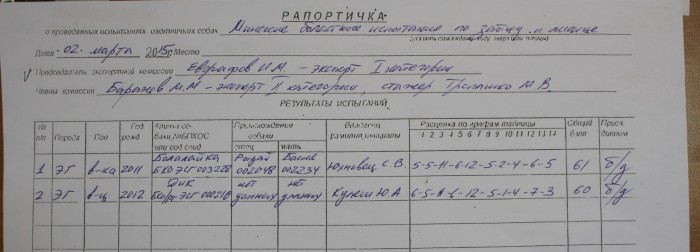 РАПОРТИЧКА
о проведенных испытаниях охотничьих собак Минские областные испытания по зайцу и лисице
Дата 02. марта 2015г. Место
Председатель экспортной комиссии Евграфов И.М. - эксперт I категории
Члены комиссии Баранов М.М - эксперт II категории, стажер М.В.
РЕЗУЛЬТАТЫ ИСПЫТАНИЙ
№ п/п Порода Пол Год рожд Кличка со- баки, №БПКОС или род свид Происхождение собаки отец мать Владелец фамилия, инициалы Расценка по графам таблицы 1 2 3 4 5 6 7 8 9 10 11 12 13 14 Общий балл Прис. диплом
1 ЭГ в-ка 2011 Балалайка БКО ЭСТ 003228 002048 002234 Юхновец С.В. 5-5-11-6-12-5-2-4-6-5 61 б/д
2 ЭГ в-ц 2012 Дик нет данных нет данных Ю.А 6-5-11-6-12-5-1-4-7-3 60 б/д